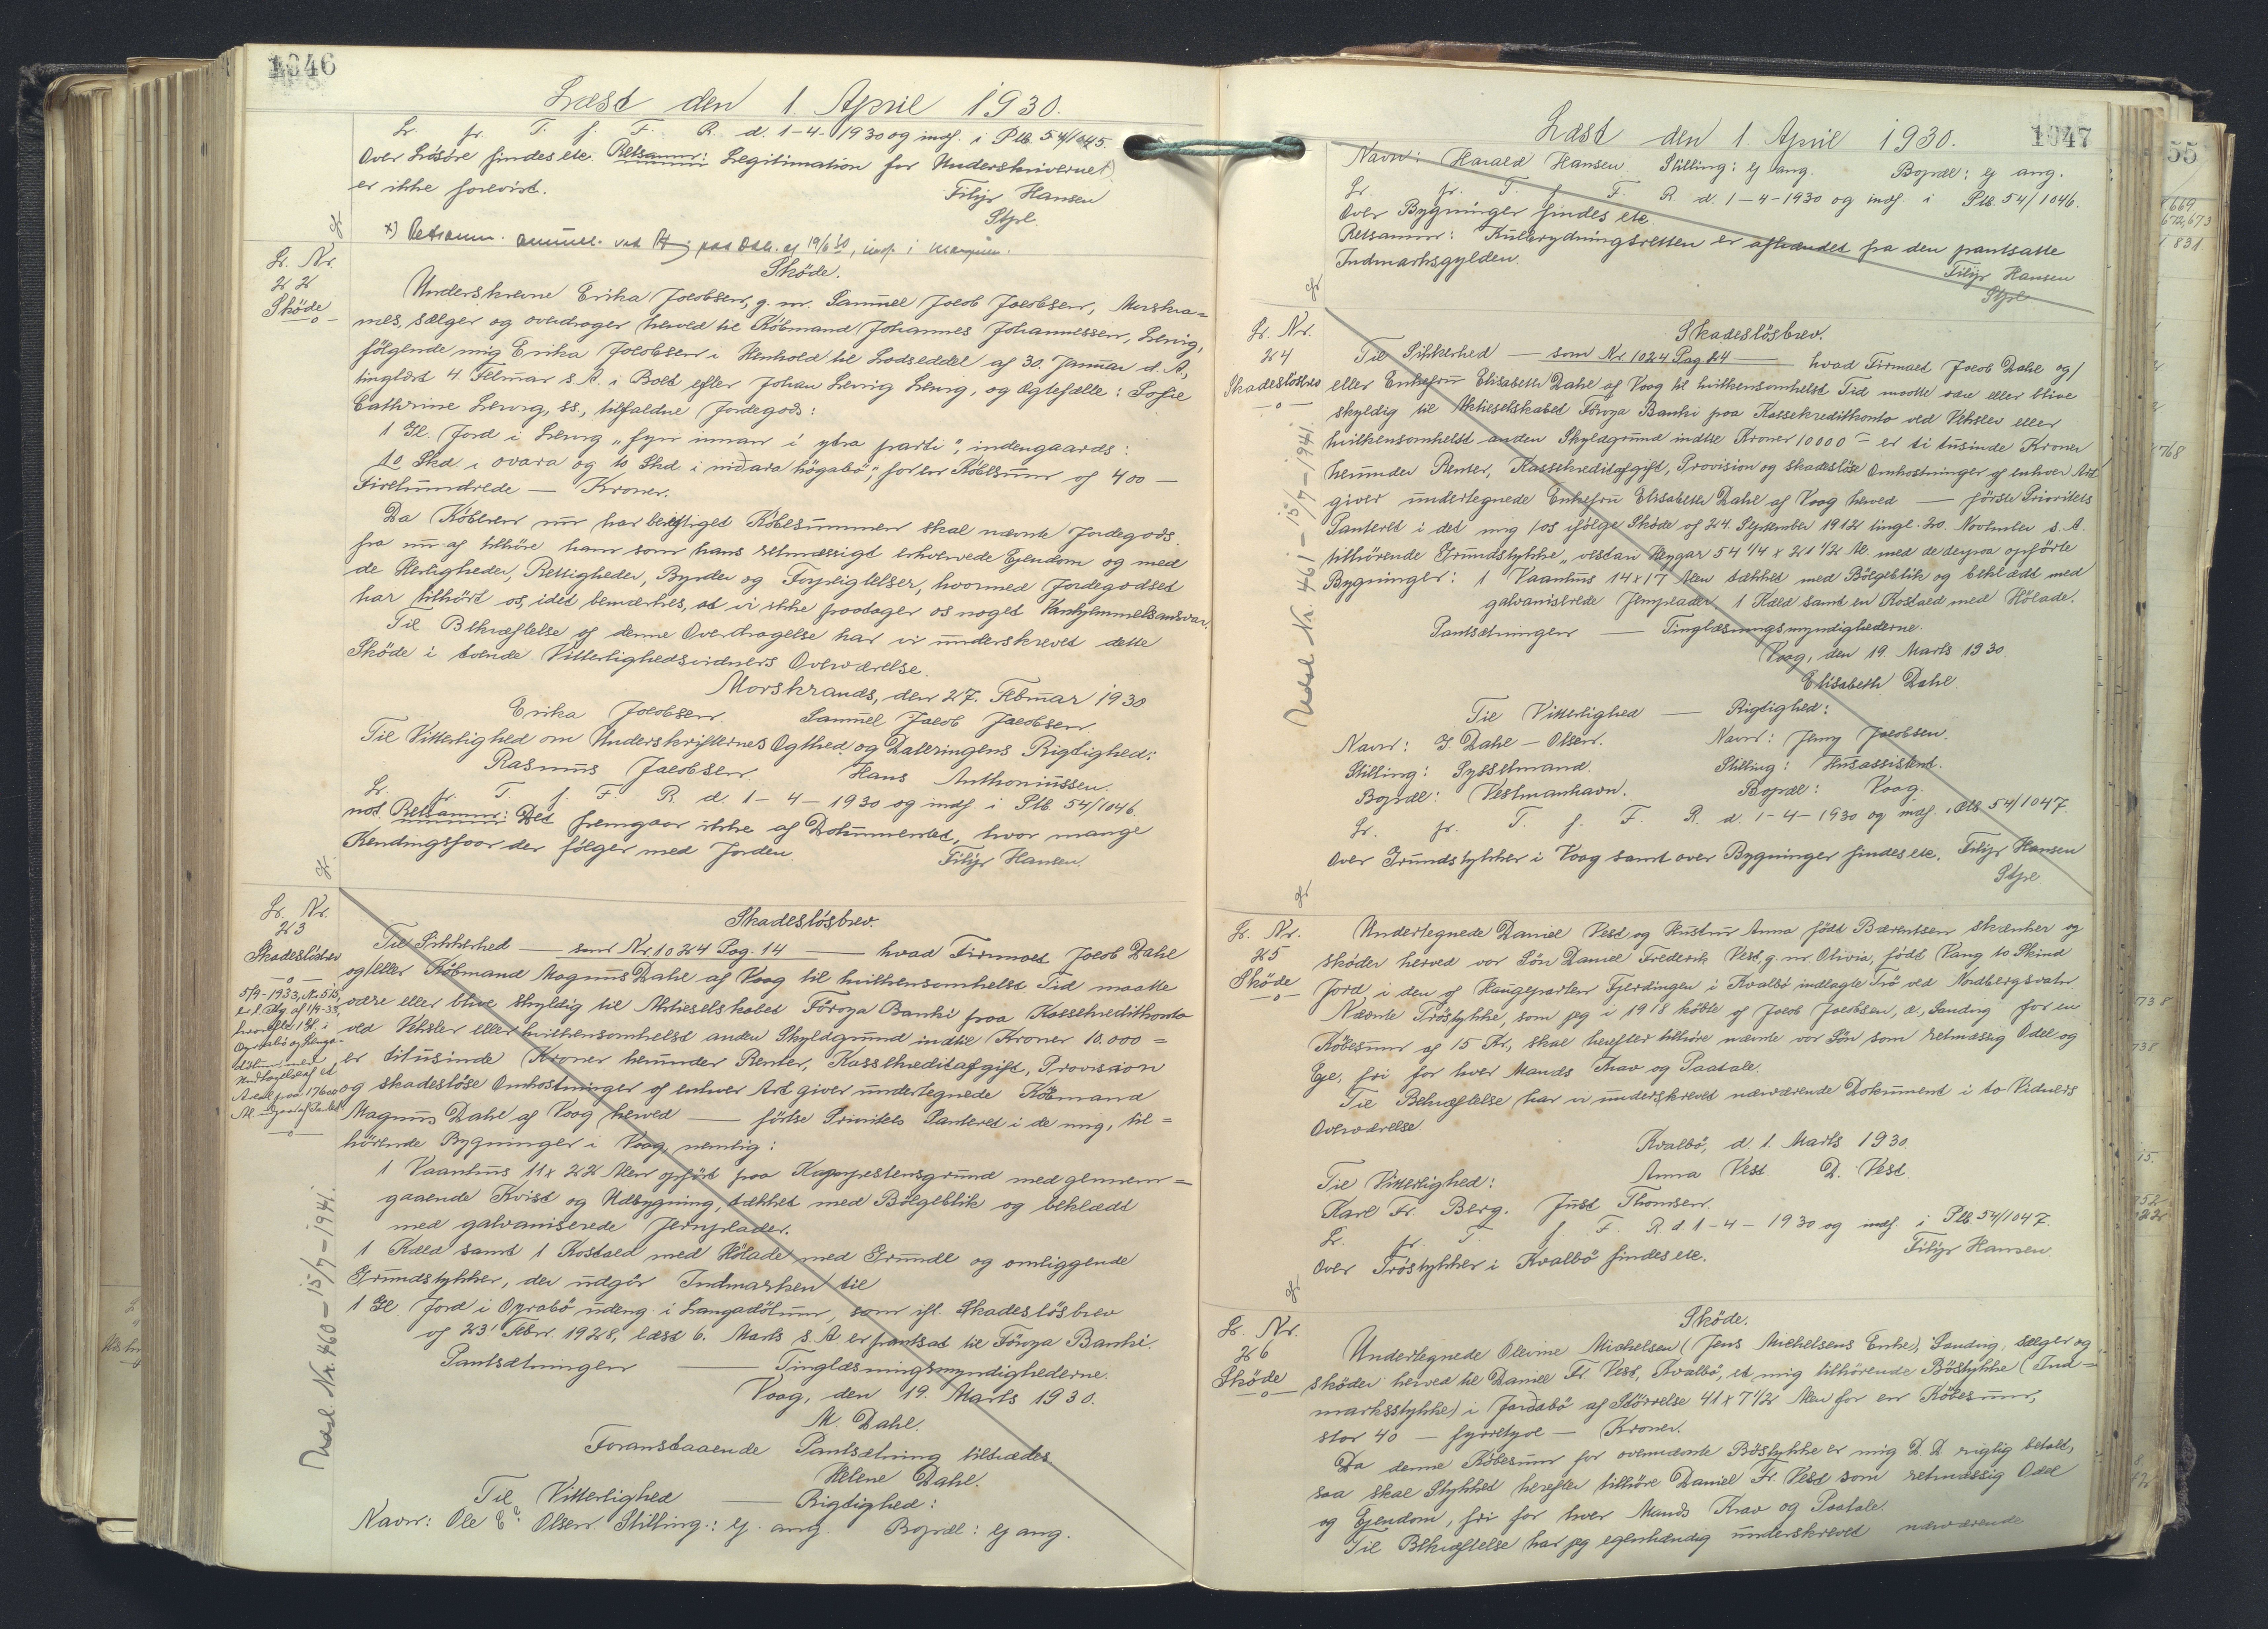 1046
Læst den 1 April 1930.
Lr. fr. T. f. F. R. d. 1-4-1930 og indf. i Ptb. 54/1045.
Over Lösöre findes etc. Retsanm: Legitimation for Underskriveren x)
er ikke forevist.
Filip Hansen
Stpl.
Lr. Nr.
22
Sköde
Sköde.
Underskrevne Erika Jacobsen, g. m. Samuel Jacob Jacobsen, Morskra=
nes, sælger og overdrager herved til Köbmand Johannes Johannessen, Lervig,
fölgende mig Erika Jacobsen i Henhold til Lodseddel af 30. Januar d. A.,
tinglæst 4. Februar s. A. i Boet efter Johan Lervig Lervg, og Ægtefælle: Sofie
Cathrine Lervig, ss., tilfaldne Jordegods:
1 Gl. Jord i Lervg "fyri innan i ytra parti", indengaards:
10 Skd. i ovara og 10 Skd. i niðara högabö", for en Köbesum af 400 —
Firehundrede — Kroner.
Da Köberen nu har berigtiget Köbesummen skal nævnte Jordegods
fra nu af tilhöre ham som hans retmæssigt erhvervede Ejendom og med
de Herligheder, Rettigheder, Byrder og Forpligtelser, hvormed Jordegodset
har tilhört os, idet bemærkes, at vi ikke paatager os noget Vanhjemmelsansvar.
Til Bekræftelse af denne Overdragelse har vi underskrevet dette
Sköde i tvende Vitterlighedsvidners Overværelse.
Morskranes, den 27. Februar 1930
Erika Jacobsen. Samuel Jacob Jacobsen
Til Vitterlighed om Underskrifternes Ægthed og Dateringens Rigtighed:
Rasmus Jacobsen. Hans Anthoniussen.
Lr. fr. T. f. F. R. d. 1-4-1930 og indf. i Ptb. 54/1046.
not. Retsanm: Det fremgaar ikke af Dokumentet, hvor mange
Kendingsfaar der fölger med Jorden.
Filip Hansen.
Lr. Nr.
23
Skadeslösbrev
Skadeslösbrev.
Til Sikkerhed — som Nr. 1024 Pag. 14 — hvad Firmaet Jacob Dahl
og/eller Köbmand Magnus Dahl af Vaag til hvilkensomhelst Tid maatte
være eller blive skyldig til Aktieselskabet Föroya Banki paa Kassekreditkonto
ved Veksler eller hvilkensomhelst anden Skyldgrund indtil Kroner 10.000 =
er titusinde Kroner herunder Renter, Kassekreditafgift, Provision
og skadeslöse Omkostninger af enhver Art giver undertegnede Köbmand
Magnus Dahl af Vaag herved — förste Prioritets Panteret i de mig, til=
hörende Bygninger i Vaag, nemlig:
1 Vaanhus 11 x 22 Alen opfört paa Kapspestensgrund med gennem=
gaaende Kvist og Udbygning, tækket med Bölgeblik og beklædt
med galvaniserede Jernplader.
1 Kæld samt 1 Kostald med Hölade med Grunde og omliggende
Grundstykker, der udgör Indmarken til
1 Gl. Jord i Oyrabö udeng. i Langadölum, som ifl. Skadeslösbrev
af 23' Febr. 1928, læst 6. Marts s. A er pantsat til Föroya Banki.
Pantsætningen — Tinglæsningsmyndighederne.
Vaag, den 19. Marts 1930.
M. Dahl.
Foranstaaende Pantsætning tiltrædes
Helene Dahl.
Til Vitterlighed — Rigtighed:
Navn: Ole E. Olsen. Stilling: ej ang. Bopæl: ej ang.
Udsl. Nr. 460 - 15/7 - 1941.
1047
Læst den 1 April 1930.
Navn: Harald Hansen Stilling: ej ang. Bopæl: ej ang.
Lr. fr. T. f. F. R. d. 1-4-1930 og indf. i Ptb. 54/1046.
Over Bygninger findes etc.
Retsanm: Kulbrydningsretten er afhændet fra den pantsatte
Indmarksgylden.
Filip Hansen
Stpl
Lr. Nr.
24
Skadeslösbrev
Skadeslösbrev.
Til Sikkerhed — som Nr 1024 Pag 24 — hvad Firmaet Jacob Dahl og/
eller Enkefru Elisabeth Dahl af Vaag til hvilkensomhelst Tid maatte være eller blive
skyldig til Aktieselskabet Föroya Banki paa Kassekreditkonto ved Veksler eller
hvilkensomhelst anden Skyldgrund indtil Kroner 10000 = er ti tusinde Kroner
herunder Renter, Kassekreditafgift, Provision og skadeslöse Omkostninger af enhver Art
giver undertegnede Enkefru Elisabeth Dahl af Vaag herved — förste Prioritets
Panteret i det mig/os ifölge Sköde af 24. September 1912 tingl. 20. November s. A.
tilhörende Grundstykke "vestan Heygar 54 1/4 x 21 1/2 Al. med de derpaa opförte
Bygninger: 1 Vaanhus 14 x 17 Alen tækket med Bölgeblik og beklædt med
galvaniserede Jernplader 1 Kæld samt en Kostald med Hölade.
Pantsætningen — Tinglæsningsmyndighederne.
Vaag, den 19. Marts 1930.
Elisabeth Dahl.
Til Vitterlighed — Rigtighed:
Navn: J. Dahl-Olsen. Navn: Jenny Jacobsen.
Stilling: Sysselmand. Stilling: Husassistent.
Bopæl: Vestmanhavn. Bopæl: Vaag.
Lr. fr. T. f. F. R. d. 1-4-1930 og indf. i Ptb 54/1047.
Over Grundstykker i Vaag samt over Bygninger findes etc. Filip Hansen
Stpl
Udsl. Nr. 461 - 15/7 - 1941.
Lr. Nr.
25
Sköde
Undertegnede Daniel Vest og Hustru Anna född Bærentsen skænker og
sköder herved vor Sön Daniel Frederik Vest, g. m. Olivia, född Vang 10 Skind
Jord i den af Haugeparten Fjerdingen i Kvalbö indlagte Trö ved Nordbergsvatn.
Nævnte Tröstykke, som jeg i 1918 köbte af Jacob Jacobsen, a, Sandvig for en
Köbesum af 15 Kr., skal herefter tilhöre nævnte vor Sön som retmæssig Odel og
Eje, fri for hver Mands Krav og Paatale.
Til Bekræftelse har vi underskrevet nærværende Dokument i to Vidners
Overværelse.
Kvalbö, d 1. Marts 1930.
Til Vitterlighed: Anna Vest D. Vest
Karl Fr. Berg. Just Thomsen.
Lr. fr. T. f. F. R. d. 1-4-1930 og indf. i Ptb. 54/1047.
Over Tröstykker i Kvalbö findes etc.
Filip Hansen.
Lr. Nr.
26
Sköde
Sköde.
Undertegnede Olevine Michelsen (Jens Michelsens Enke), Sandvig, sælger og
sköder herved til Daniel Fr. Vest, Kvalbö, et mig tilhörende Böstykke (Ind=
marksstykke) i Jardabö af Störrelse 41 x 7 1/2 Alen for en Köbesum,
stor 40 — fyrretyve — Kroner.
Da denne Köbesum for ovennævnte Böstykke er mig D. D. rigtig betalt,
saa skal Stykket herefter tilhöre Daniel Fr. Vest som retmæssig Odel
og Ejendom, fri for hver Mands Krav og Paatale.
Til Bekræftelse har jeg egenhændig underskrevet nærværende
55